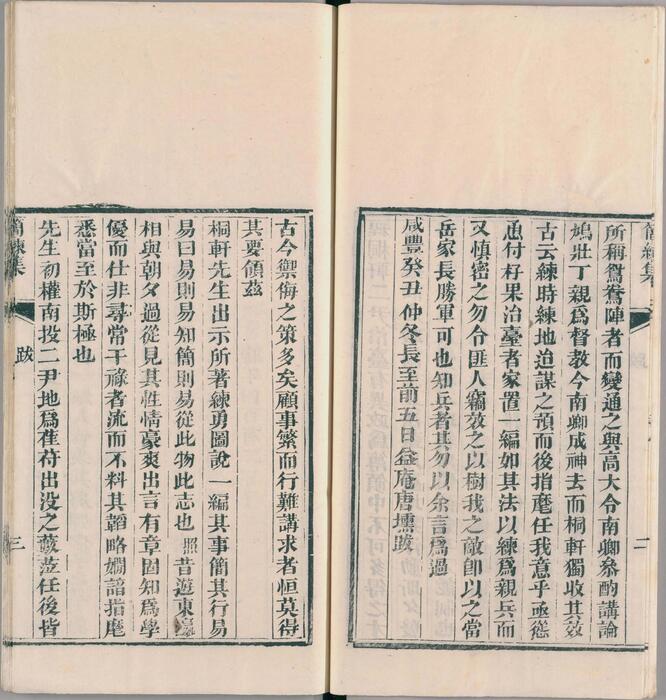 簡練集
二
所稱鴛鴦陣者而變通之與高大令南卿叅酌講論
鳩壯丁親爲督教今南卿成神去而桐軒獨收其效
古云練時練地迫謀之預而後指麾任我意乎亟慫
恿付梓果治臺者家置一編如其法以練爲親兵而
又慎密之勿令匪人竊效之以樹我之敵卽以之當
岳家長勝軍可也知兵者其勿以余言爲過
咸豐癸丑仲冬長至前五日益庵唐壎跋
古今禦侮之策多矣顧事繁而行難講求者恒莫得
其要領茲
桐軒先生出示所著練勇圖說一編其事簡其行易
易曰易則易知簡則易從此物此志也 照昔遊東臺
相與朝夕過從見其性情豪爽出言有章固知爲學
優而仕非尋常干祿者流而不料其韜略嫺諳指麾
悉當至於斯極也
先生初權南投二尹地爲萑苻出没之藪蒞任後皆
簡練集
跋
三